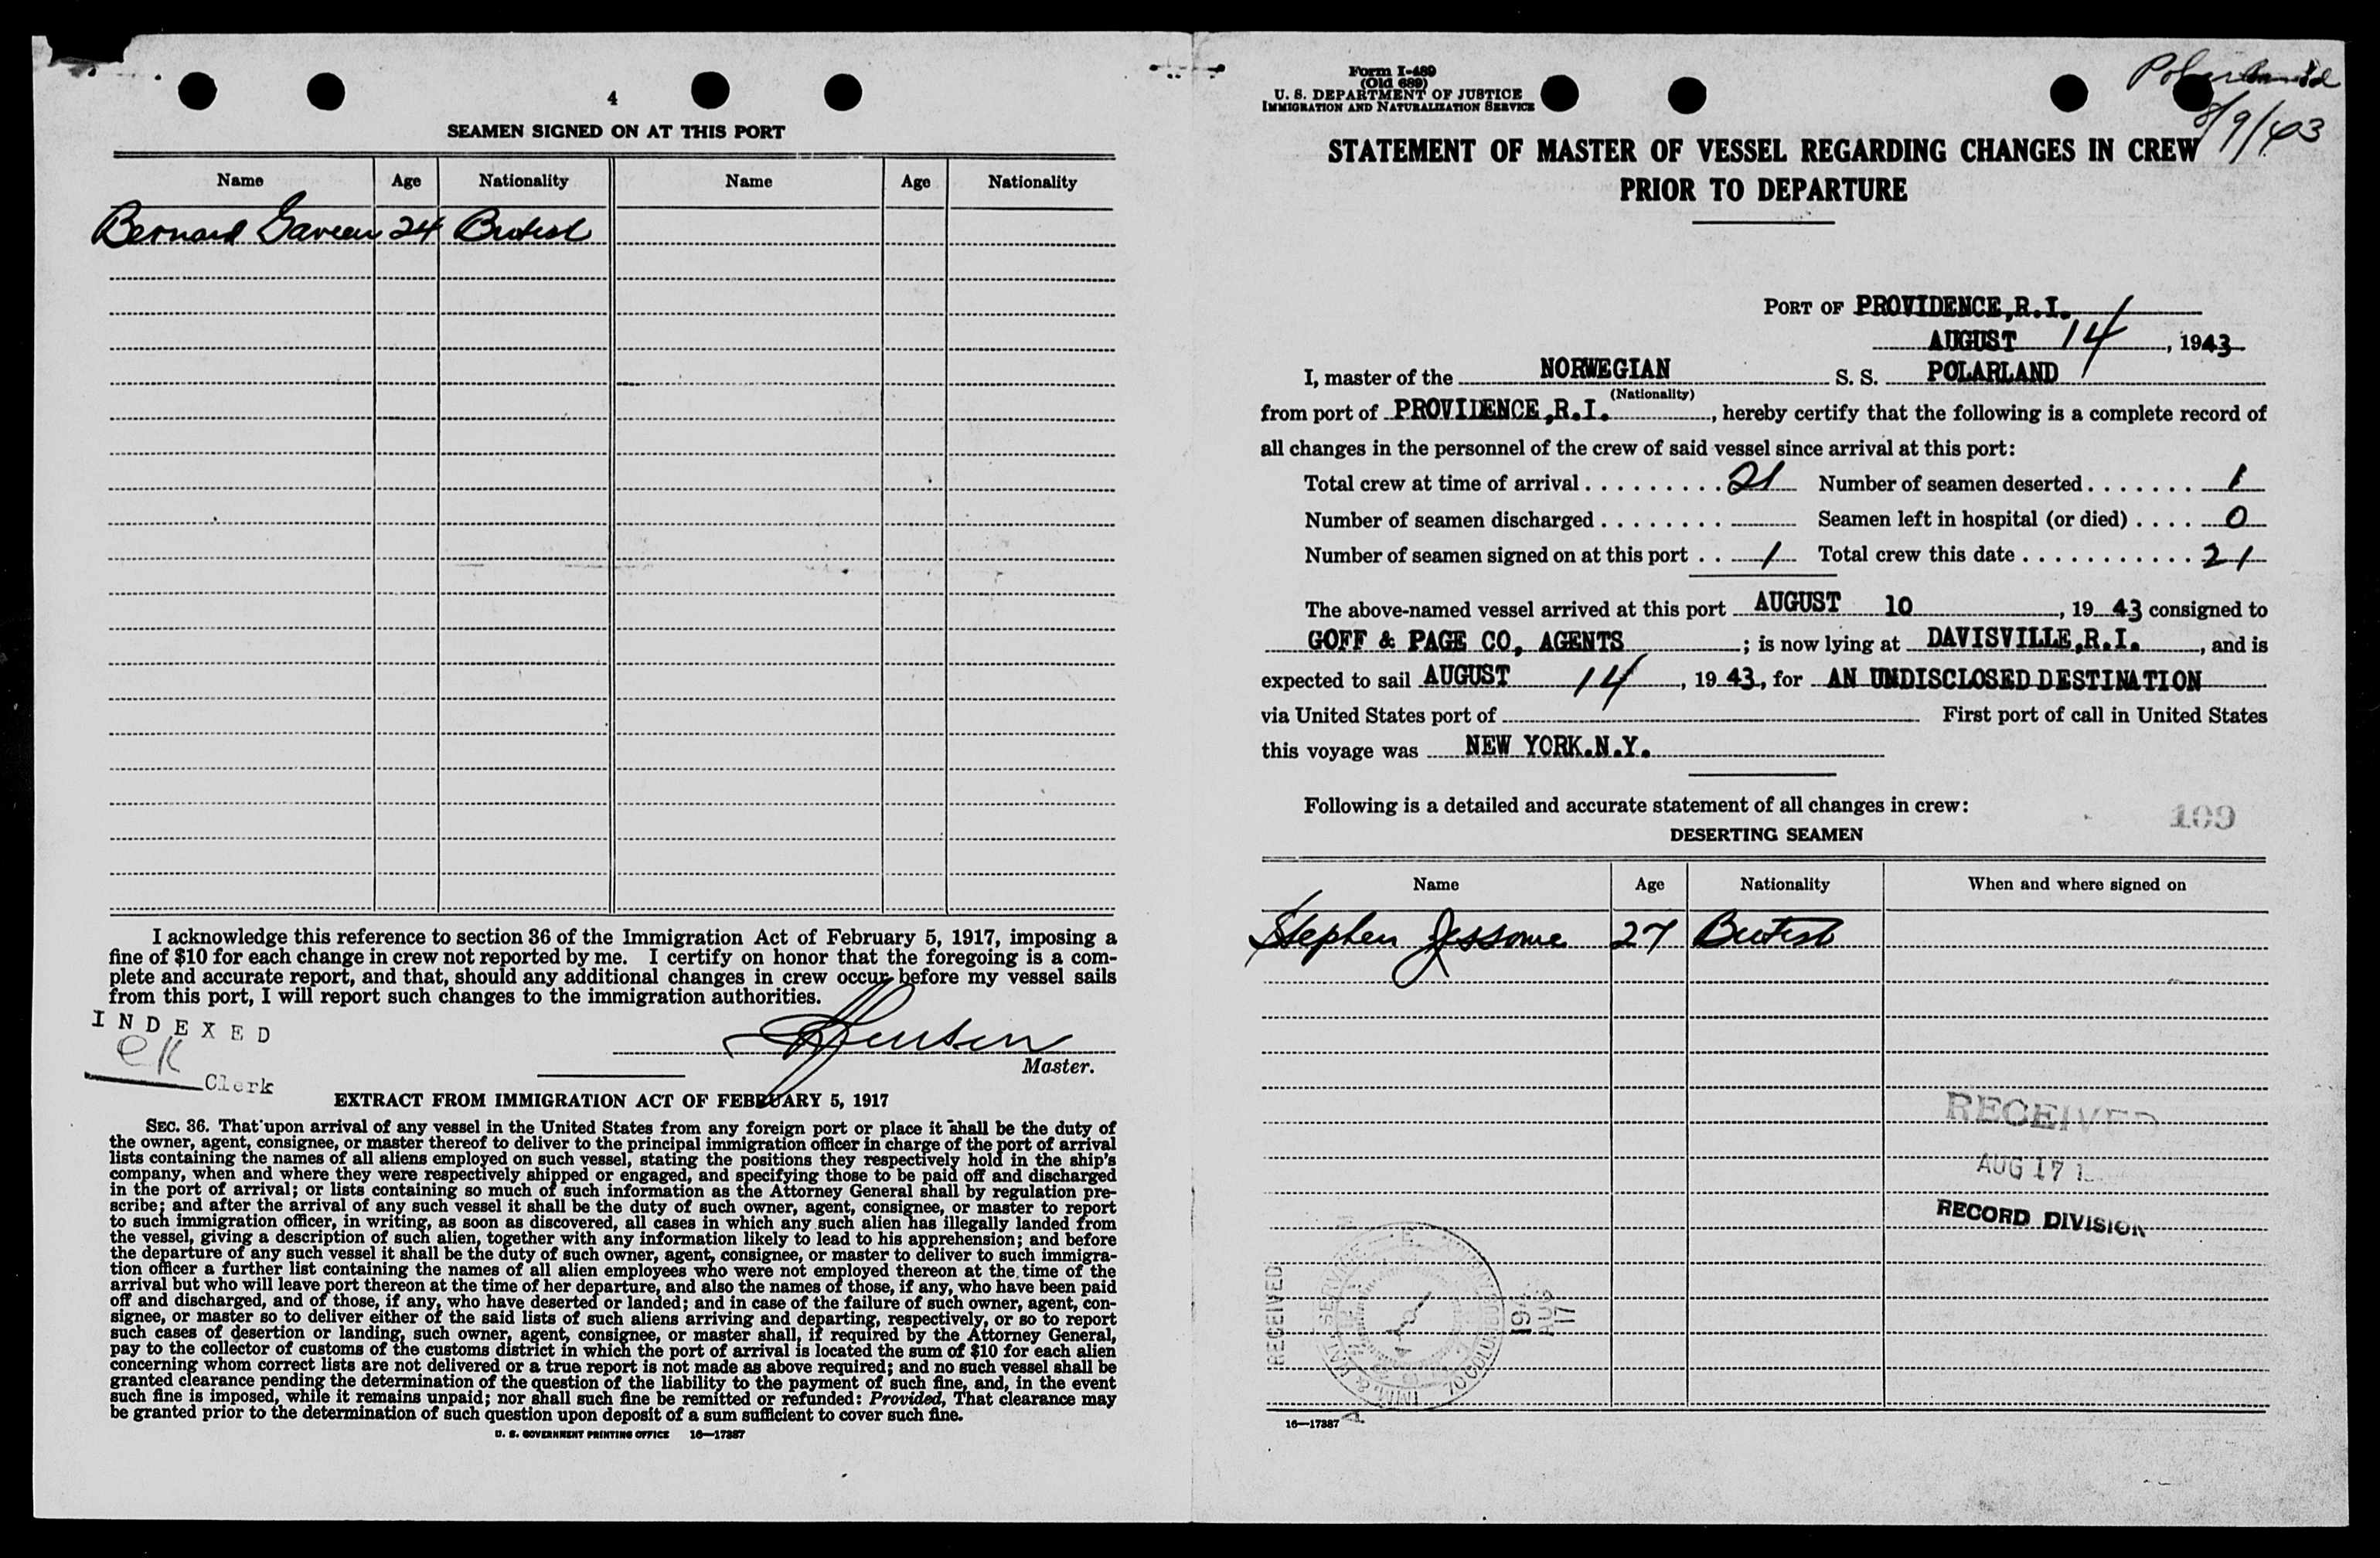 4
SEAMEN SIGNED ON AT THIS PORT
Name Age Nationality Name Age Nationality
Bernard 24 British
I acknowledge this reference to section 36 of the Immigration Act of February 5, 1917, imposing a
fine of $10 for each change in crew not reported by me. I certify on honor that the foregoing is a com-
plete and accurate report, and that, should any additional changes in crew occur before my vessel sails
from this port, I will report such changes to the immigration authorities.
INDEXED
CK
Clerk
Master.
EXTRACT FROM IMMIGRATION ACT OF FEBRUARY 5, 1917
SEC. 36. That upon arrival of any vessel in the United States from any foreign port or place it shall be the duty of
the owner, agent, consignee, or master thereof to deliver to the principal immigration officer in charge of the port of arrival
lists containing the names of all aliens employed on such vessel, stating the positions they respectively hold in the ship's
company, when and where they were respectively shipped or engaged, and specifying those to be paid off and discharged
in the port of arrival; or lists containing so much of such information as the Attorney General shall by regulation pre-
scribe; and after the arrival of any such vessel it shall be the duty of such owner, agent, consignee, or master to report
to such immigration officer, in writing, as soon as discovered, all cases in which any such alien has illegally landed from
the vessel, giving a description of such alien, together with any information likely to lead to his apprehension; and before
the departure of any such vessel it shall be the duty of such owner, agent, consignee, or master to deliver to such immigra-
tion officer a further list containing the names of all alien employees who were not employed thereon at the time of the
arrival but who will leave port thereon at the time of her departure, and also the names of those, if any, who have been paid
off and discharged, and of those, if any, who have deserted or landed; and in case of the failure of such owner, agent, con-
signee, or master so to deliver either of the said lists of such aliens arriving and departing, respectively, or so to report
such cases of desertion or landing, such owner, agent, consignee, or master shall, if required by the Attorney General,
pay to the collector of customs of the customs district in which the port of arrival is located the sum of $10 for each alien
concerning whom correct lists are not delivered or a true report is not made as above required; and no such vessel shall be
granted clearance pending the determination of the question of the liability to the payment of such fine, and, in the event
such fine is imposed, while it remains unpaid; nor shall such fine be remitted or refunded: Provided, That clearance may
be granted prior to the determination of such question upon deposit of a sum sufficient to cover such fine.
U. S. GOVERNMENT PRINTING OFFICE 16—17387
Form I-489
(Old 689)
U. S. DEPARTMENT OF JUSTICE
IMMIGRATION AND NATURALIZATION SERVICE
8/9/43
STATEMENT OF MASTER OF VESSEL REGARDING CHANGES IN CREW
PRIOR TO DEPARTURE
PORT OF PROVIDENCE,R.I.
AUGUST 14, 1943
I, master of the NORWEGIAN S. S. POLARLAND
(Nationality)
from port of PROVIDENCE,R.I., hereby certify that the following is a complete record of
all changes in the personnel of the crew of said vessel since arrival at this port:
Total crew at time of arrival 21 Number of seamen deserted 1
Number of seamen discharged Seamen left in hospital (or died) 0
Number of seamen signed on at this port 1 Total crew this date 21
The above-named vessel arrived at this port AUGUST 10, 1943 consigned to
GOFF & PAGE CO, AGENTS; is now lying at DAVISVILLE,R.I., and is
expected to sail AUGUST 14, 1943, for AN UNDISCLOSED DESTINATION
via United States port of First port of call in United States
this voyage was NEW YORK.N.Y.
Following is a detailed and accurate statement of all changes in crew:
109
DESERTING SEAMEN
Name Age Nationality When and where signed on
Stephen Jessome 27 British
RECEIVED
AUG 17
RECORD DIVISION
RECEIVED
AUG 17
16—17387